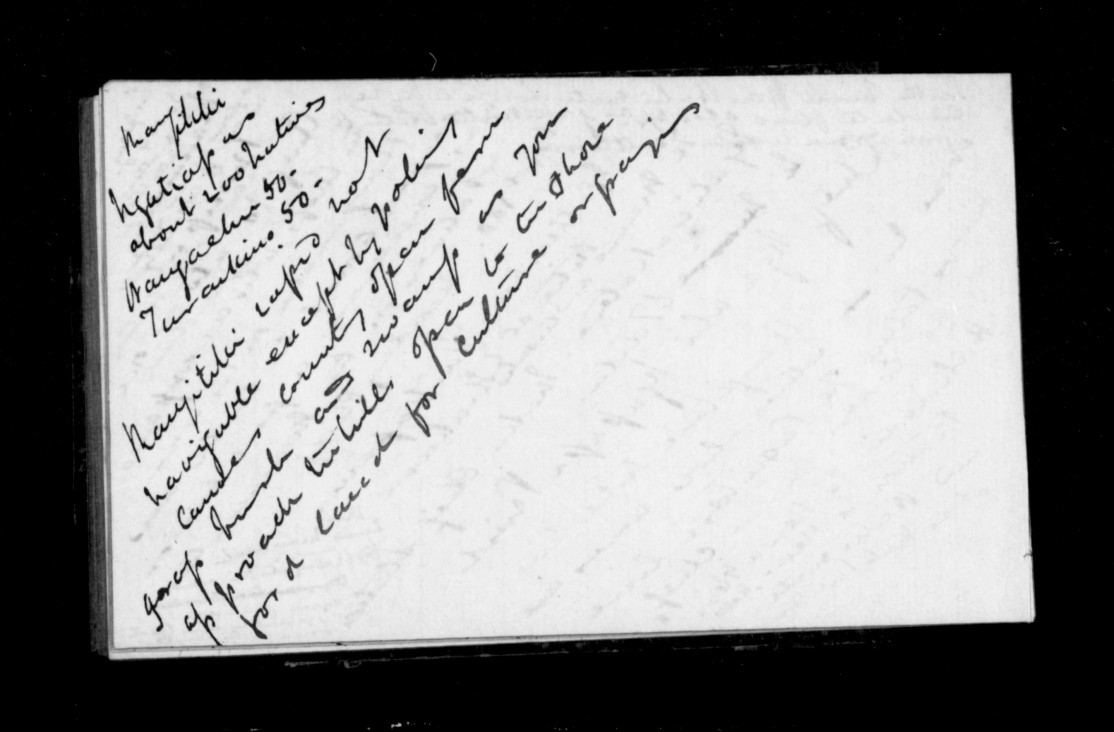 Mangitiki
Ngatiapa
about 200 natives
Wangaehu 50.
Turakino 50.
Mangitiki rapid not
navigable except by poling
canoes country open fern
grass bush and swamp as you
approach the hills open to the shore
for d land for culture or grazing